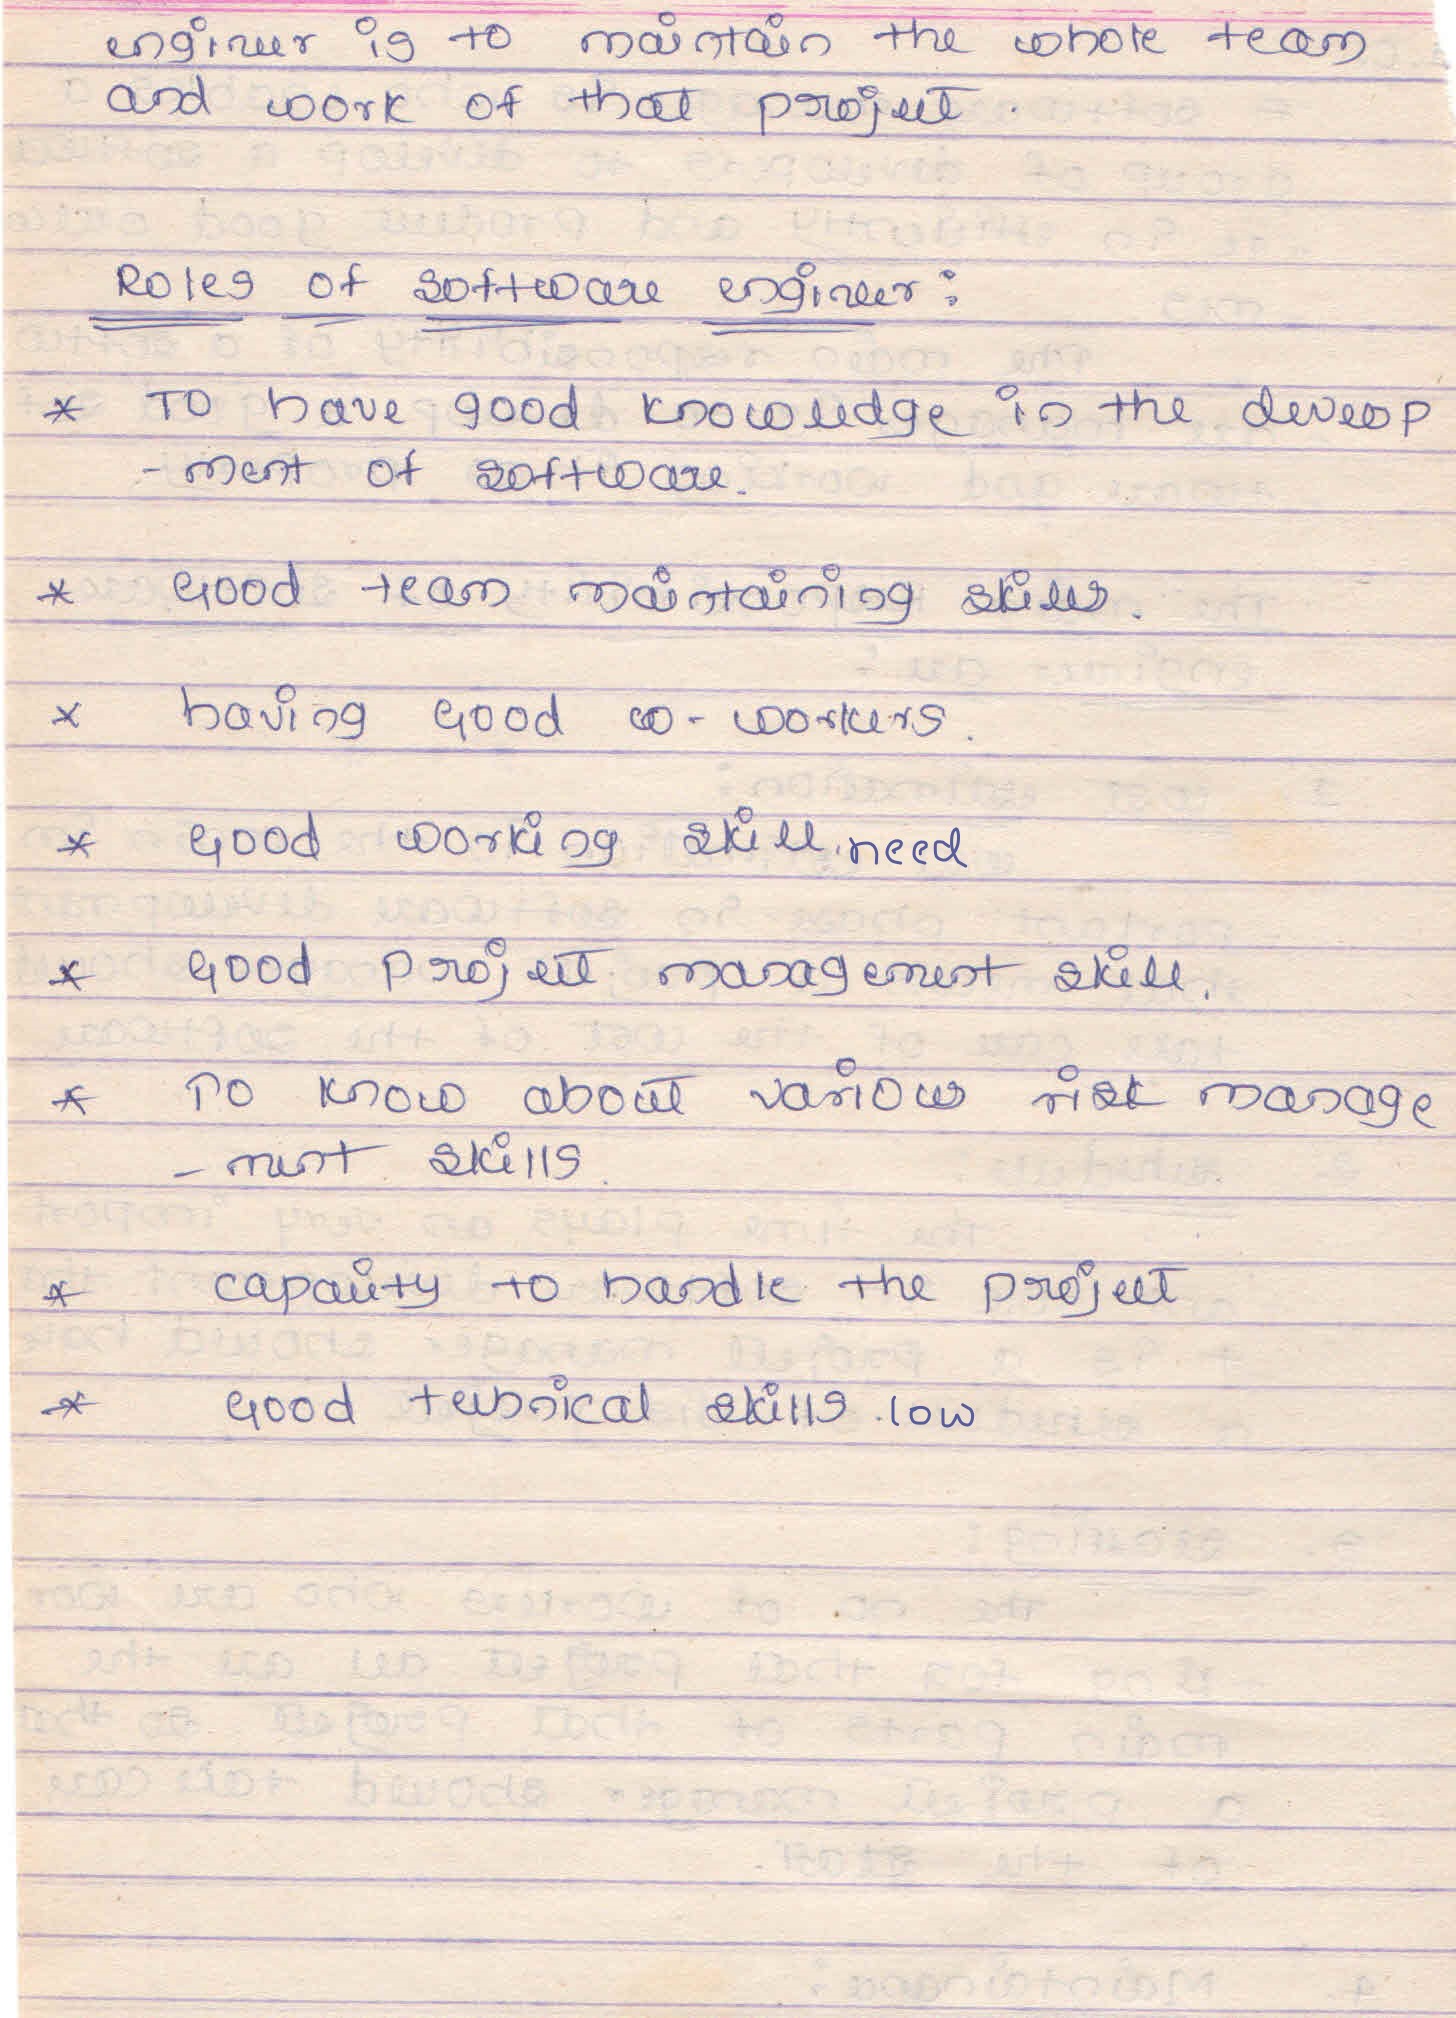 engineer is to maintain the whole team
and work of that project.
Roles of software engineer:
* To have good knowledge in the develop
-ment of software.
* Good team maintaining skills.
* having Good co-workers.
* Good working skill. need
* Good project management skill.
* To know about various risk manage
-ment skills.
* capacity to handle the project
* Good technical skills. low